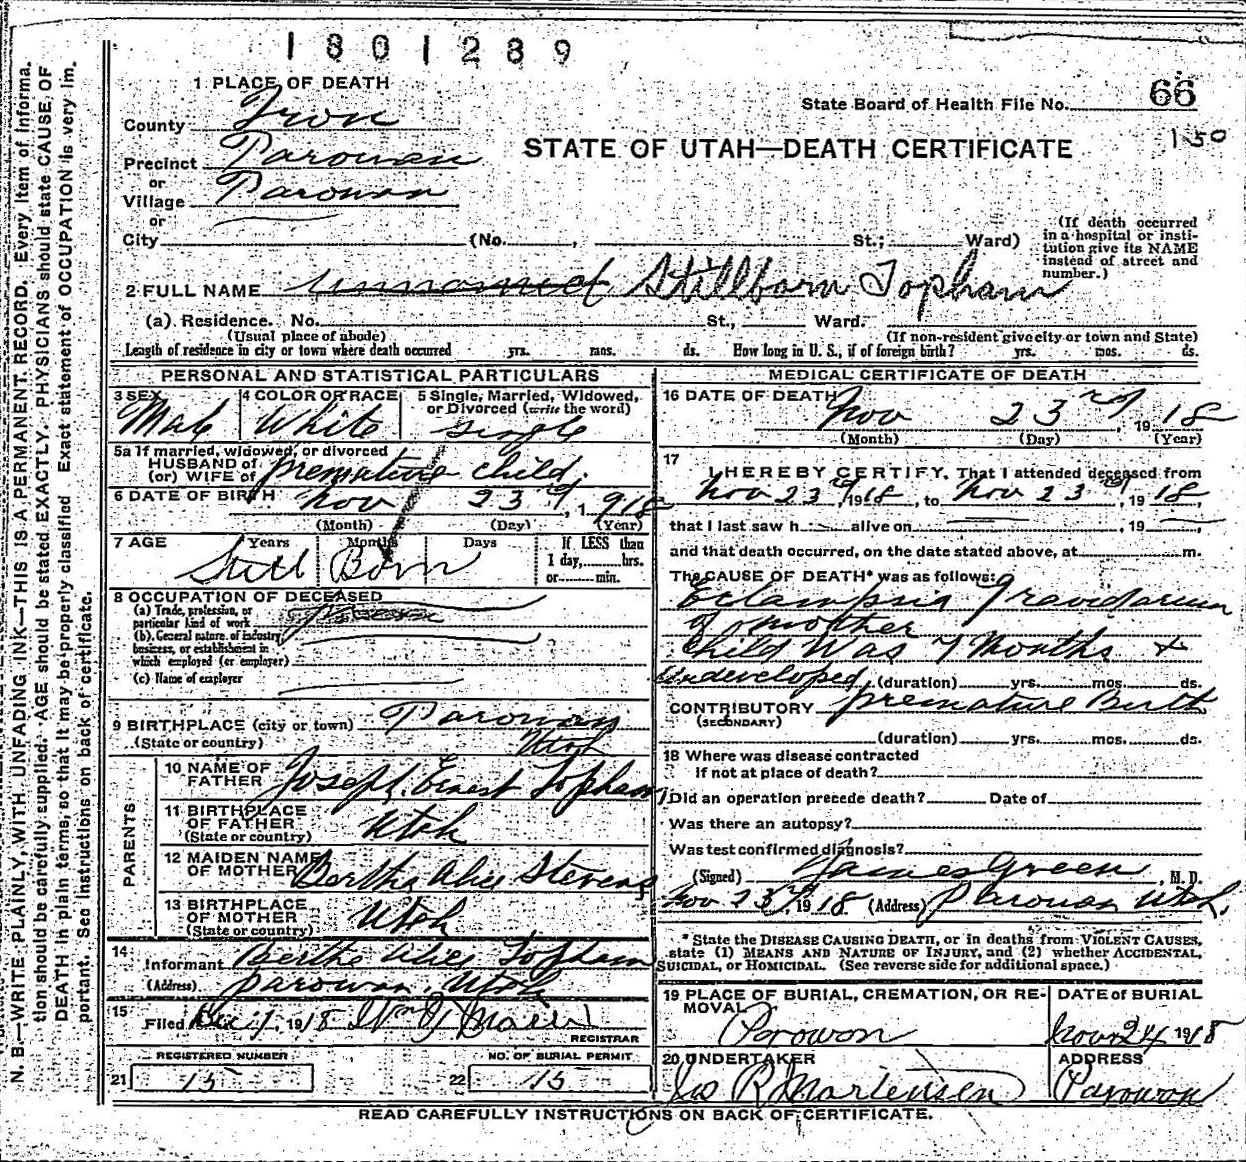 1801289
1 PLACE OF DEATH
State Board of Health File No. 66
150
County Iron
STATE OF UTAH—DEATH CERTIFICATE
Precinct Parowan
or
Village Parowan
or
City (No. , St.; Ward)
(If death occurred in a hospital or insti-
tution give its NAME instead of street and number.)
2 FULL NAME unnamed Stillborn Topham
(a) Residence. No. St., Ward.
(Usual place of abode) (If non-resident give city or town and State)
Length of residence in city or town where death occurred yrs. mos. ds. How long in U. S., if of foreign birth? yrs. mos. ds.
PERSONAL AND STATISTICAL PARTICULARS
3 SEX 4 COLOR OR RACE 5 Single, Married, Widowed,
or Divorced (write the word)
Male White Single
5a If married, widowed, or divorced
HUSBAND of
(or) WIFE of premature child.
6 DATE OF BIRTH Nov 23rd, 1918
(Month) (Day) (Year)
7 AGE Years Months Days If LESS than
1 day, hrs.
or min.
Still Born
8 OCCUPATION OF DECEASED
(a) Trade, profession, or
particular kind of work
(b) General nature of industry
business, or establishment in
which employed (or employer)
(c) Name of employer
9 BIRTHPLACE (city or town) Parowan
(State or country) Utah
PARENTS
10 NAME OF
FATHER Joseph Ernest Topham
11 BIRTHPLACE
OF FATHER Utah
(State or country)
12 MAIDEN NAME
OF MOTHER Bertha Alice Stevens
13 BIRTHPLACE
OF MOTHER Utah
(State or country)
14
Informant Bertha Alice Topham
(Address) Parowan, Utah
15
Filed Dec 1, 1918
REGISTRAR
REGISTERED NUMBER NO. OF BURIAL PERMIT
21 15 22 15
MEDICAL CERTIFICATE OF DEATH
16 DATE OF DEATH
Nov 23rd, 1918
(Month) (Day) (Year)
17
I HEREBY CERTIFY, That I attended deceased from
Nov 23rd, 1918, to Nov 23rd, 1918
that I last saw h alive on , 19 ,
and that death occurred, on the date stated above, at m.
The CAUSE OF DEATH* was as follows:
Eclampsia Gravidarum
of mother
Child Was 7 Months &
Undeveloped, (duration) yrs. mos. ds.
CONTRIBUTORY premature Birth
(SECONDARY)
(duration) yrs. mos. ds.
18 Where was disease contracted
if not at place of death?
Did an operation precede death? Date of
Was there an autopsy?
Was test confirmed diagnosis?
(Signed) James Green, M. D.
Nov 23rd, 1918 (Address) Parowan Utah.
* State the DISEASE CAUSING DEATH, or in deaths from VIOLENT CAUSES,
state (1) MEANS AND NATURE OF INJURY, and (2) whether ACCIDENTAL,
SUICIDAL, or HOMICIDAL. (See reverse side for additional space.)
19 PLACE OF BURIAL, CREMATION, OR RE-
MOVAL DATE OF BURIAL
Parowan Nov 24 1918
20 UNDERTAKER ADDRESS
Jos R Martensen Parowan
READ CAREFULLY INSTRUCTIONS ON BACK OF CERTIFICATE.
N. B.—WRITE PLAINLY, WITH UNFADING INK—THIS IS A PERMANENT RECORD. Every item of informa-
tion should be carefully supplied. AGE should be stated EXACTLY. PHYSICIANS should state CAUSE OF
DEATH in plain terms, so that it may be properly classified. Exact statement of OCCUPATION is very im-
portant. See instructions on back of certificate.